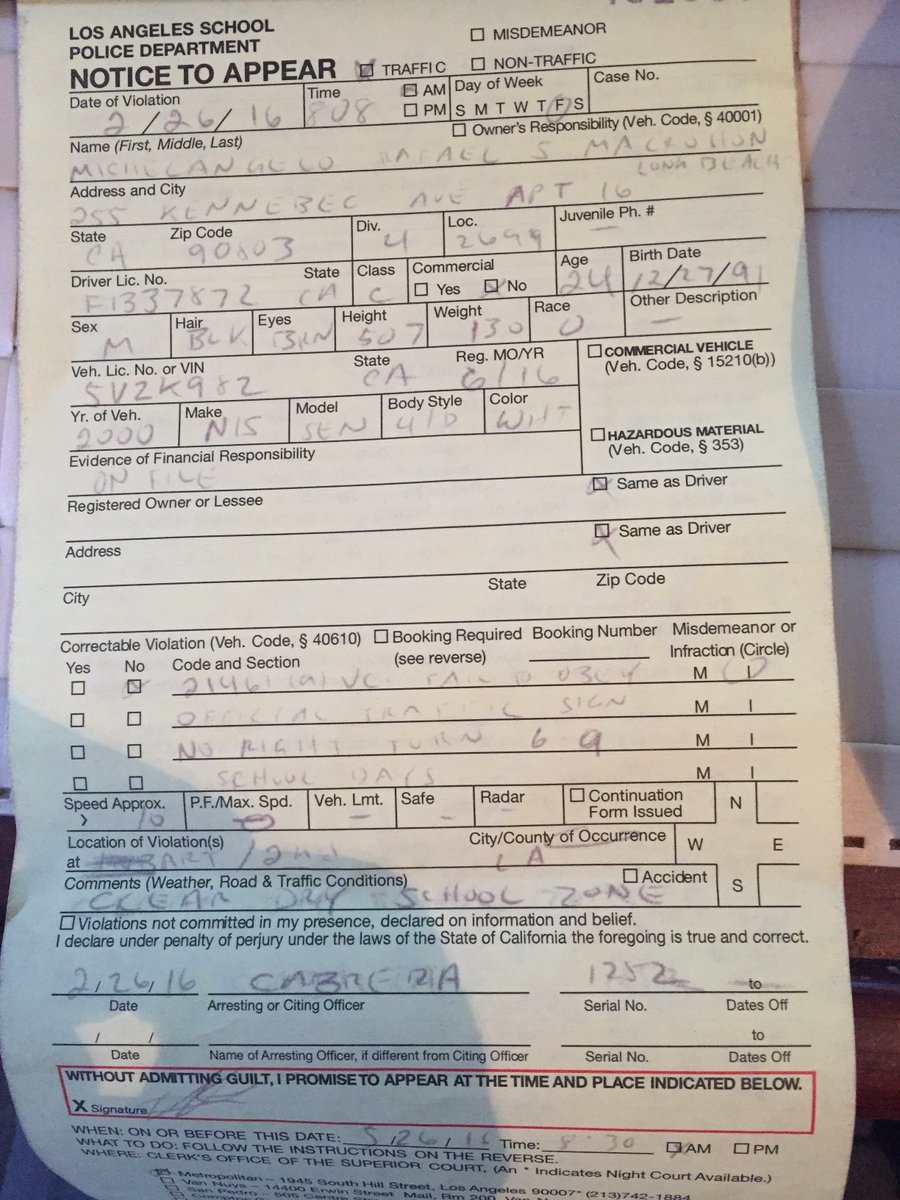 LOS ANGELES SCHOOL
POLICE DEPARTMENT
NOTICE TO APPEAR
MISDEMEANOR
TRAFFIC NON-TRAFFIC
Date of Violation Time AM PM Day of Week S M T W T F S Case No.
2/26/16 808
Name (First, Middle, Last) Owner's Responsibility (Veh. Code, § 40001)
MICHELANGELO RAFAEL S MACROHON
Address and City LONG BEACH
255 KENNEBEC AVE APT 16
State Zip Code Div. Loc. Juvenile Ph. #
CA 90803 4 2699 —
Driver Lic. No. State Class Commercial Age Birth Date
F1337872 CA C Yes No 24 12/27/91
Sex Hair Eyes Height Weight Race Other Description
M BLK BRN 507 130 O —
Veh. Lic. No. or VIN State Reg. MO/YR COMMERCIAL VEHICLE
(Veh. Code, § 15210(b))
5VZK982 CA 6/16
Yr. of Veh. Make Model Body Style Color
2000 NIS SEN 4/D WHT
HAZARDOUS MATERIAL
(Veh. Code, § 353)
Evidence of Financial Responsibility
ON FILE
Registered Owner or Lessee Same as Driver
Address Same as Driver
City State Zip Code
Correctable Violation (Veh. Code, § 40610) Booking Required Booking Number Misdemeanor or
Yes No Code and Section (see reverse) Infraction (Circle)
21461(a) VC FAIL OBEY M I
OFFICIAL TRAFFIC SIGN M I
NO RIGHT TURN 6 9 M I
SCHOOL DAYS M I
Speed Approx. P.F./Max. Spd. Veh. Lmt. Safe Radar Continuation
Form Issued N
10 — —
Location of Violation(s) City/County of Occurrence W E
at / 2nd LA
Comments (Weather, Road & Traffic Conditions) Accident S
CLEAR DRY SCHOOL ZONE
Violations not committed in my presence, declared on information and belief.
I declare under penalty of perjury under the laws of the State of California the foregoing is true and correct.
2/26/16 CABRERA 1252 to
Date Arresting or Citing Officer Serial No. Dates Off
/ / to
Date Name of Arresting Officer, if different from Citing Officer Serial No. Dates Off
WITHOUT ADMITTING GUILT, I PROMISE TO APPEAR AT THE TIME AND PLACE INDICATED BELOW.
X Signature
WHEN: ON OR BEFORE THIS DATE: 5/26/16 Time: 8:30 AM PM
WHAT TO DO: FOLLOW THE INSTRUCTIONS ON THE REVERSE.
WHERE: CLERK'S OFFICE OF THE SUPERIOR COURT, (An * Indicates Night Court Available.)
Metropolitan – 1945 South Hill Street, Los Angeles 90007* (213)742-1884
Van Nuys – 14400 Erwin Street Mall, Rm 200, Van
San Pedro – 505